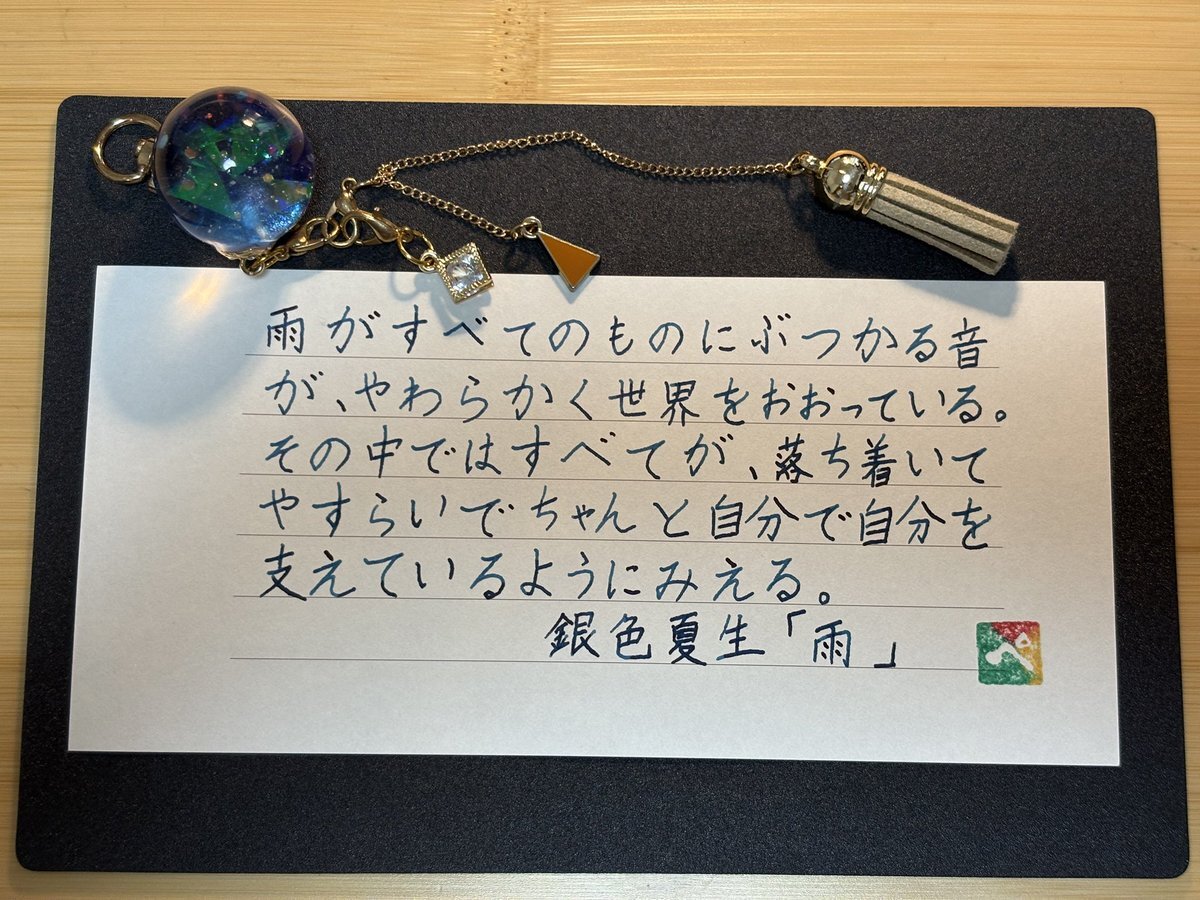 雨がすべてのものにぶつかる音
が、やわらかく世界をおおっている。
その中ではすべてが、落ち着いて
やすらいでちゃんと自分で自分を
支えているようにみえる。
銀色夏生「雨」
ぺ